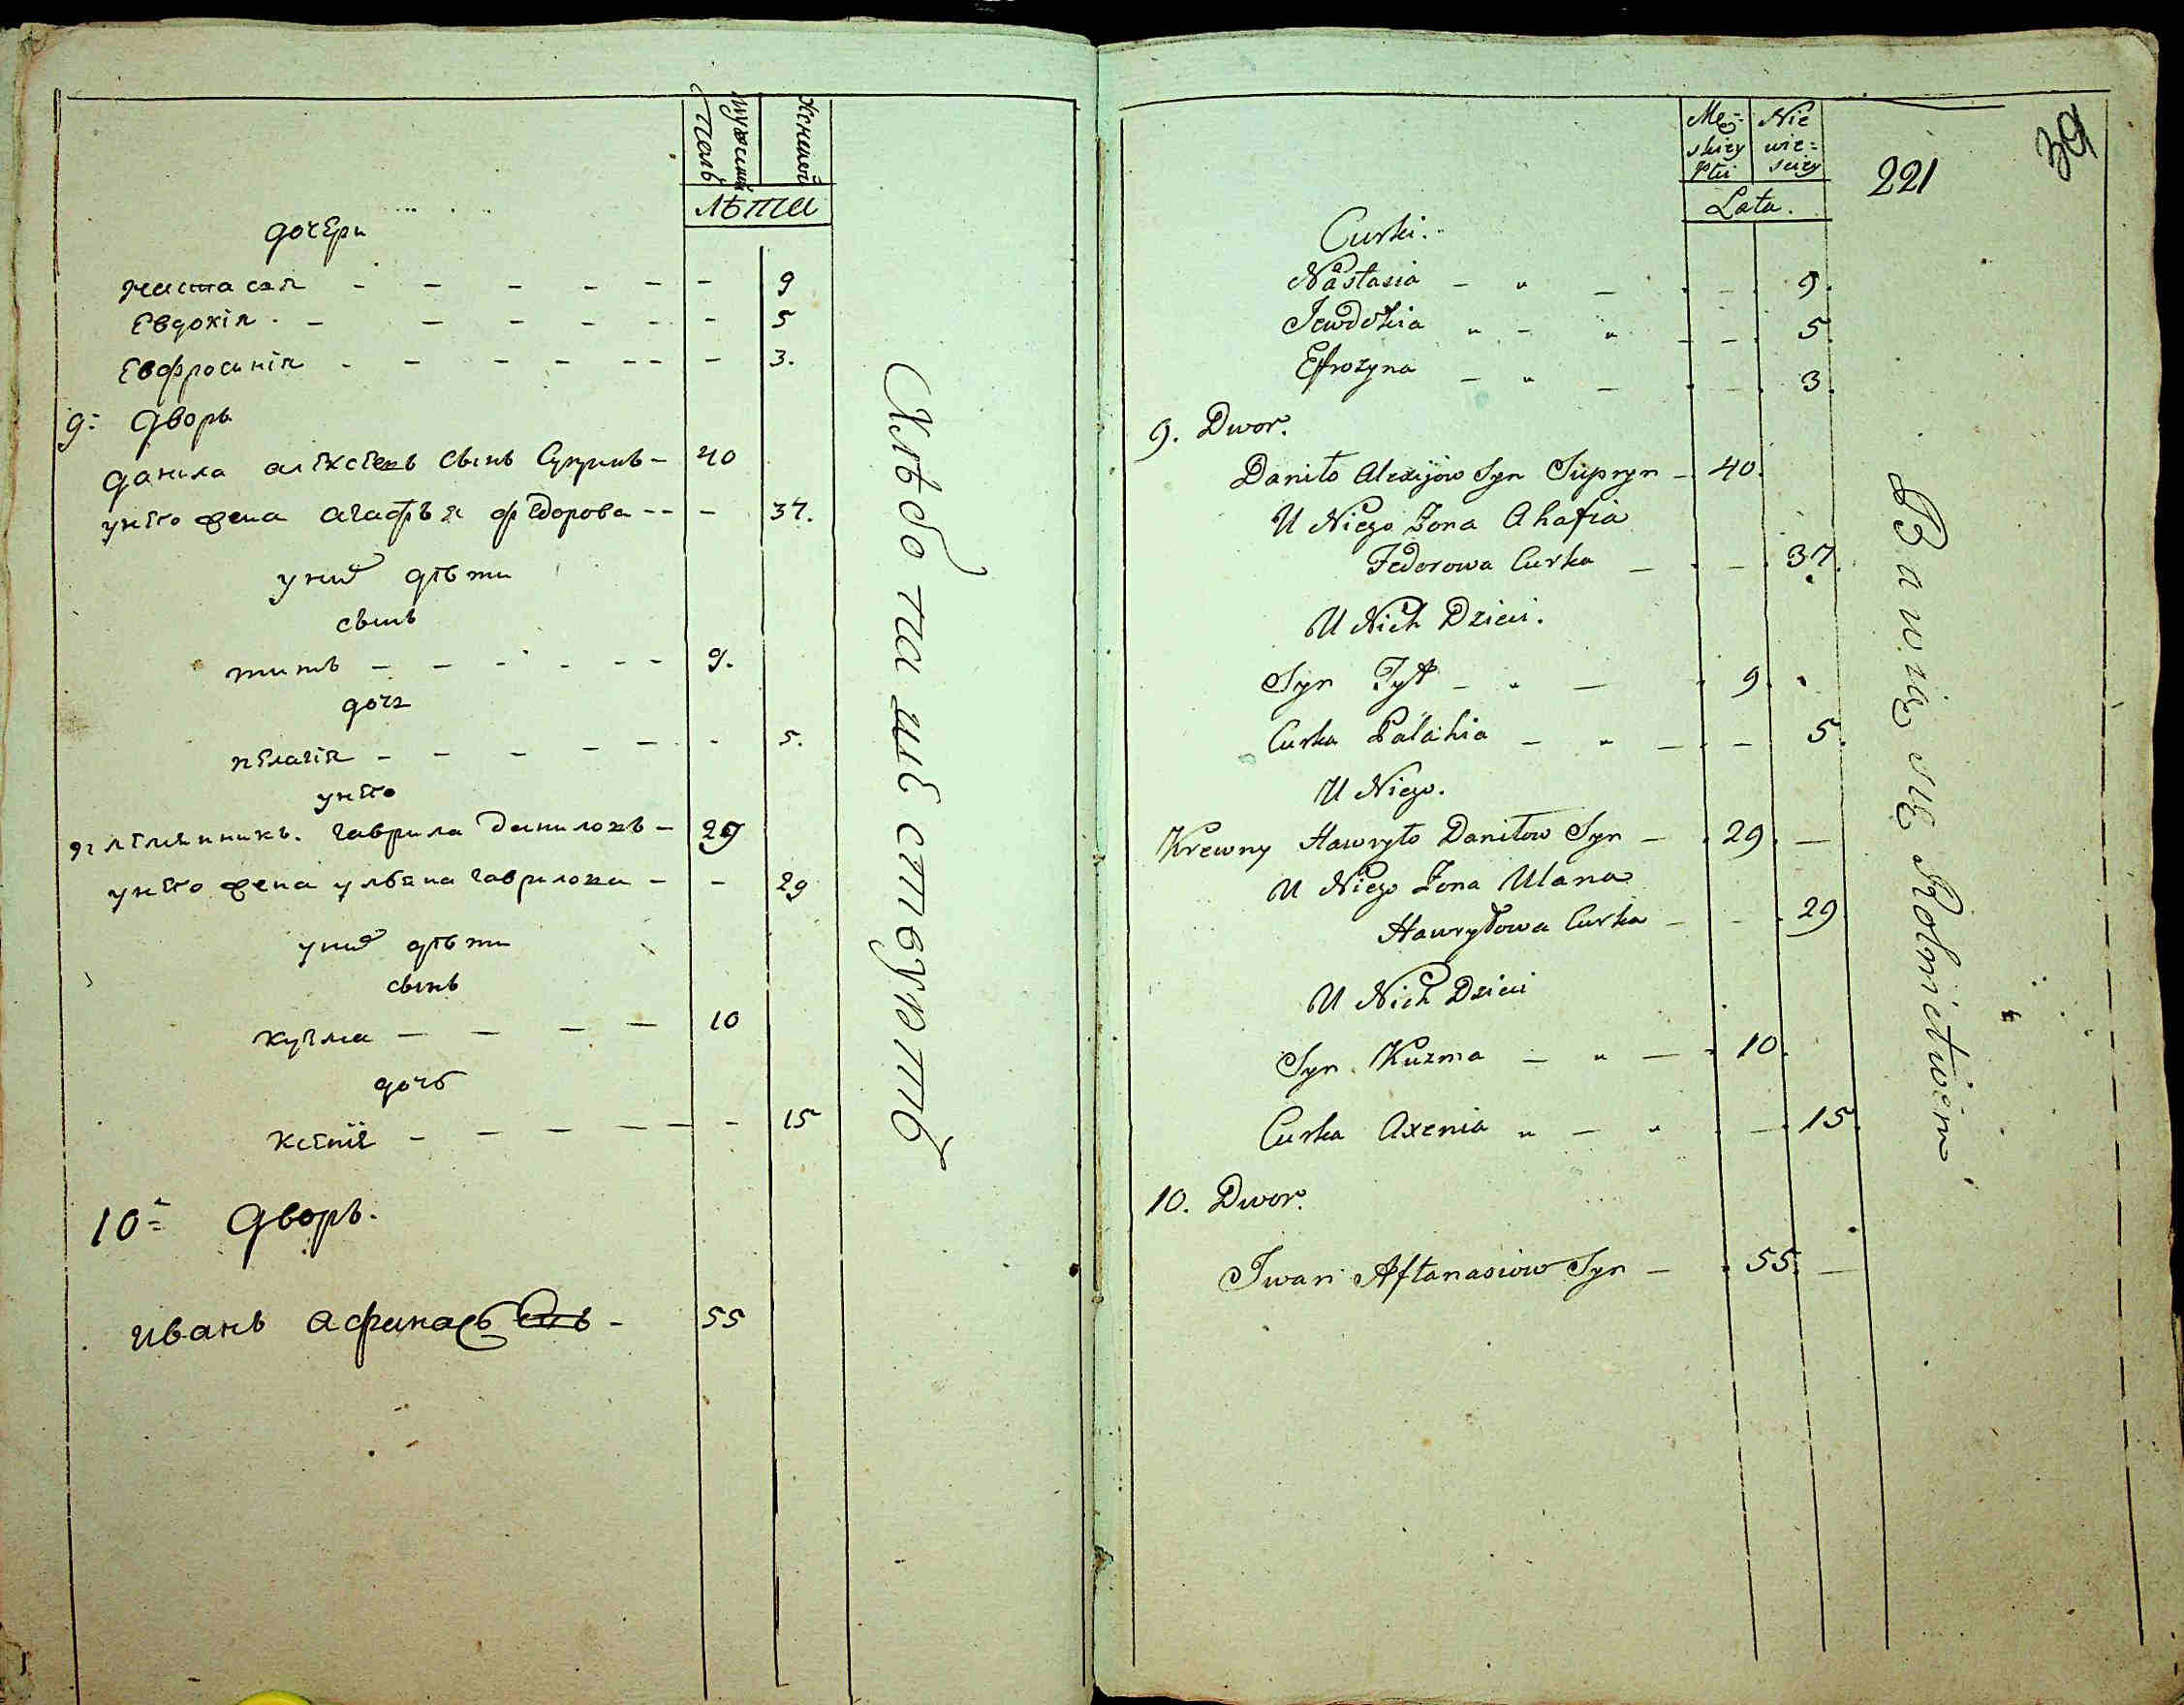 Мужеский полъ
Женской
лѣта
дочери
Настасея - - - - - - 9
Евдокія - - - - - - 5
Евфросинія - - - - - - 3.
9: Дворъ
Данила Алексеевъ сынъ Супринъ - 40
у него жена Агафья Федорова - - - 37.
у них дѣти
сынъ
Титъ - - - - - - 9.
дочь
Пелагія - - - - - - 5.
у него
племянникъ. Гаврила Даниловъ - 29
у него жена Ульяна Гаврилова - - 29
у них дѣти
сынъ
Кузма - - - - 10
дочь
Ксенія - - - - - - 15
10= Дворъ.
Иванъ Афанасьевъ - 55
Хлебопашествуютъ
39
221
Mę=skiey Płci
Nie wie=sciey
Lata.
Curki.
Nastasia - " - - 9.
Jewdokia " - " - - 5.
Efrozyna - " - - 3.
9. Dwor.
Daniło Alexijow Syn Supryn - 40.
U Niego Żona Ahafia
Fedorowa Curka - - 37.
U Nich Dzieci.
Syn Tyt - " - 9.
Curka Palahia - " - - 5.
U Niego.
Krewny Hawryło Daniłow Syn - 29. -
U Niego Żona Ulana
Hawryłowa Curka - - 29
U Nich Dzieci
Syn Kuzma - " - 10.
Curka Axenia " - " - 15.
10. Dwor.
Iwan Aftanasiow Syn - 55. -
Bawią się Rolnictwem